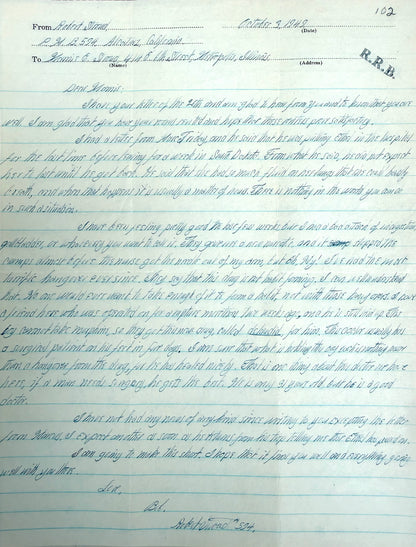 102
From Robert Stroud October 3, 1949
(Date)
P. M. B. 594, Alcatraz, California
To Marcus E. Stroud, 414 E. 6th Street, Metropolis, Illinois
(Name) (Address)
R.R.B.
Dear Marcus:
I have your letter of the 26th and am glad to hear from you and to know that you are
well. I am glad that you have your teeth and hope that these others prove satisfactory.
I had a letter from and he said that he was putting Ellen in the hospital
for the last time before leaving for a week in South Dakota. From what he said, he did not expect
her to last until he got back. He said that she has so much fluid on her lungs that she could hardly
breath, and when that happens it is usually a matter of hours. There is nothing in the world you can do
in such a situation.
I have been feeling pretty good the last few weeks but I had a bad attack of
gallbladder, or whatever you want to call it. They gave me a new and it stopped the
cramps almost before the nurse got the needle out of my arm, but oh, My! I've had the most
terrific hangover ever since. They say that this drug is not habit forming. I can well understand
that. No one would ever want to take enough of it to form a habit, not with those hangovers. I have
a friend here who was operated on for a few weeks ago, and he is still very sick. This
boy cannot take morphine, so they got this new drug, called for him. This doctor usually has
a surgical patient on his feet in four days. I am sure that what is making this boy is nothing more
than a hangover from the drug, for he has healed nicely. That is one thing about this doctor we have
here, if a man needs surgery, he gets the best. He is only 31 years old but he is a good
doctor.
I have not had any news of any kind since writing to you, excepting this letter
from Marcus. I expect another as soon as he returns from his trip telling me that Ellen has passed on.
I am going to make this short. I hope that it finds you well and everything going
well with you there.
Love,
Bob.
Robert Stroud 594.